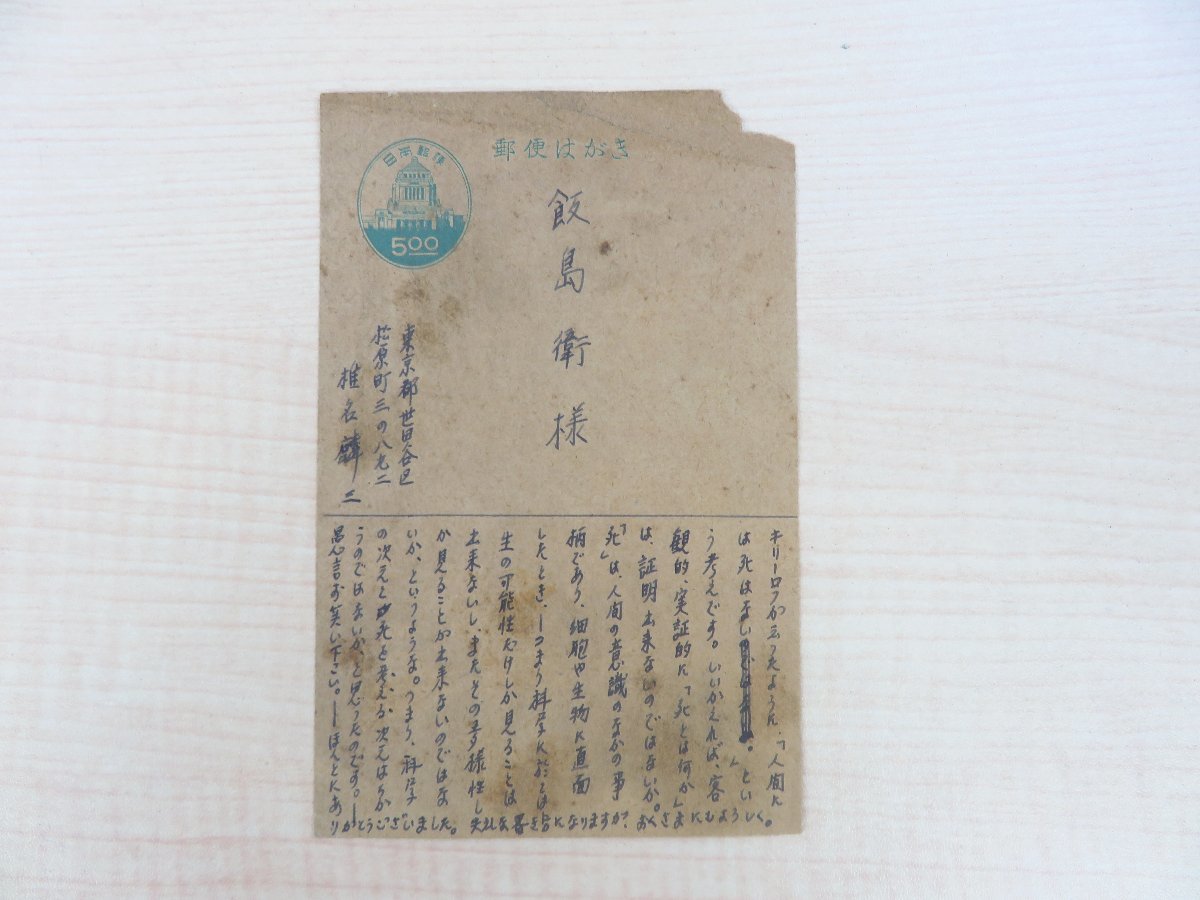 郵便はがき
日本郵便
5.00
飯島衛様
東京都世田谷区
松原町三の八九二
椎名麟三
キリーロフが云ったように、「人間に
は死はない。」とい
う考えです。いいかえれば、客
観的、実証的に「死とは何か」
は、証明出来ないのではないか。
「死」は、人間の意識のなかの事
柄であり、細胞や生物に直面
したとき、―つまり科学に於ては
生の可能性だけしか見ることは
出来ないし、またその多様性し
か見ることが出来ないのではな
いか、というような。つまり、科学
の次元と死を考える次元はちが
うのではないか、と思ったのです。―
愚言お笑い下さい。―ほんとにあり
がとうございました。失礼な
になりますが、おくさまにもよろしく。